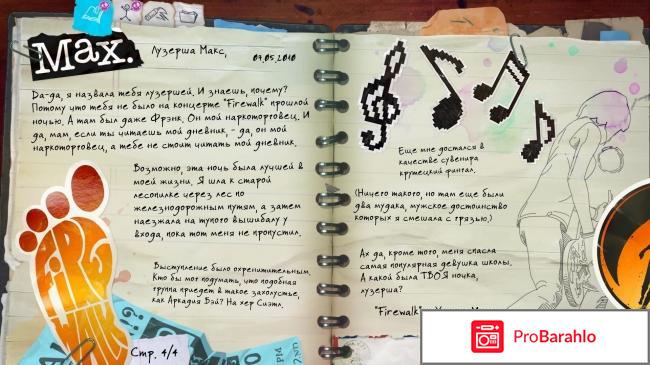 Max.
Лузерша Макс,
09.05.2010
Да-да, я назвала тебя лузершей. И знаешь, почему?
Потому что тебя не было на концерте "Firewalk" прошлой
ночью. А там был даже Фрэнк. Он мой наркоторговец. И
да, мам, если ты читаешь мой дневник, - да, он мой
наркоторговец, а тебе не стоит читать мой дневник.
Возможно, эта ночь была лучшей в
моей жизни. Я шла к старой
лесопилке через лес по
железнодорожным путям, а затем
наезжала на тупого вышибалу у
входа, пока тот меня не пропустил.
Выступление было охренительным.
Кто бы мог подумать, что подобная
группа приедет в такое захолустье,
как Аркадия Бэй? На хер Сиэтл.
FIRE
WALK
Стр. 4/4
Еще мне достался в
качестве сувенира
крутецкий фингал.
(Ничего такого, но там еще были
два мудака, мужское достоинство
которых я смешала с грязью.)
Ах да, кроме того, меня спасла
самая популярная девушка школы.
А какой была ТВОЯ ночка,
лузерша?
"Firewalk"
ProBarahlo